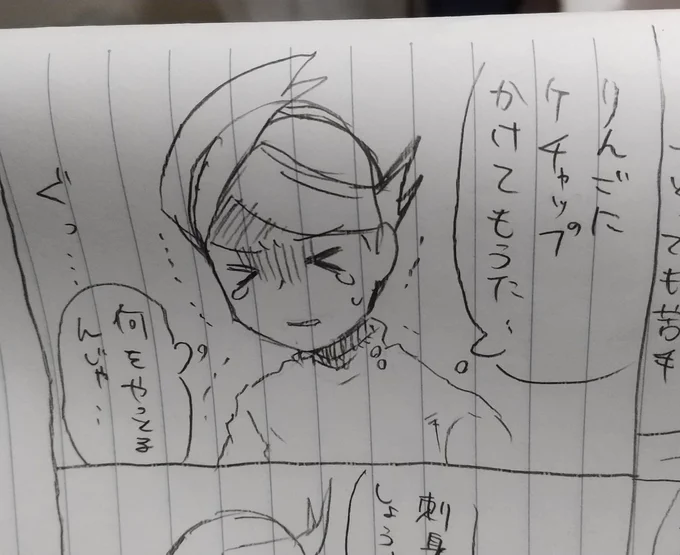 りんごに
ケチャップ
かけてもうた…
何をやってる
んじゃ…
ても苦手
刺身
しょう